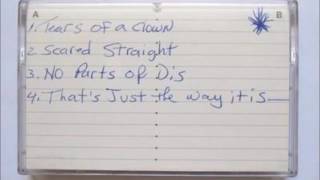 A B
1. Tears of a Clown
2. Scared Straight
3. No Parts of Dis
4. That's Just the way it is